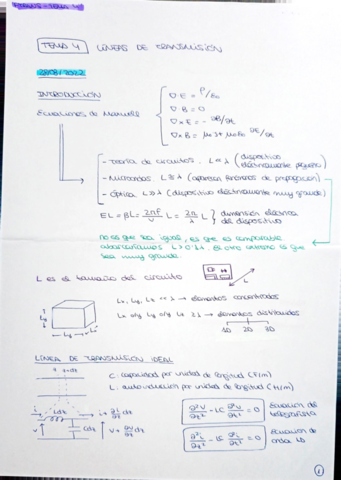 TEMA 4 LÍNEAS DE TRANSMISIÓN
INTRODUCCIÓN
Ecuaciones de Maxwell
∇·E = ρ/ε₀
∇·B = 0
∇×E = - ∂B/∂t
∇×B = μJ + με₀ ∂E/∂t
- Teoría de circuitos. L << λ (dispositivo eléctricamente pequeño)
- Microondas L ≅ λ (aparecen fenómenos de propagación)
- Óptica L >> λ (dispositivo eléctricamente muy grande)
EL = βL = 2πf/v L = 2π/λ L } dimensión eléctrica del dispositivo
no es que sea igual, es que es comparable
sea muy grande.
L es el tamaño del circuito
L
Lx, Ly, Lz << λ → elementos concentrados
Lx o/y Ly o/y Lz ≥ λ → elementos distribuidos
1D 2D 3D
LÍNEA DE TRANSMISIÓN IDEAL
C. capacidad por unidad de longitud (F/m)
L. autoinducción por unidad de longitud (H/m)
Ldz
Cdz
∂²V/∂z² - LC ∂²V/∂t² = 0 Ecuación del telegrafista
∂²i/∂z² - LC ∂²i/∂t² = 0 Ecuación de onda 1D
1